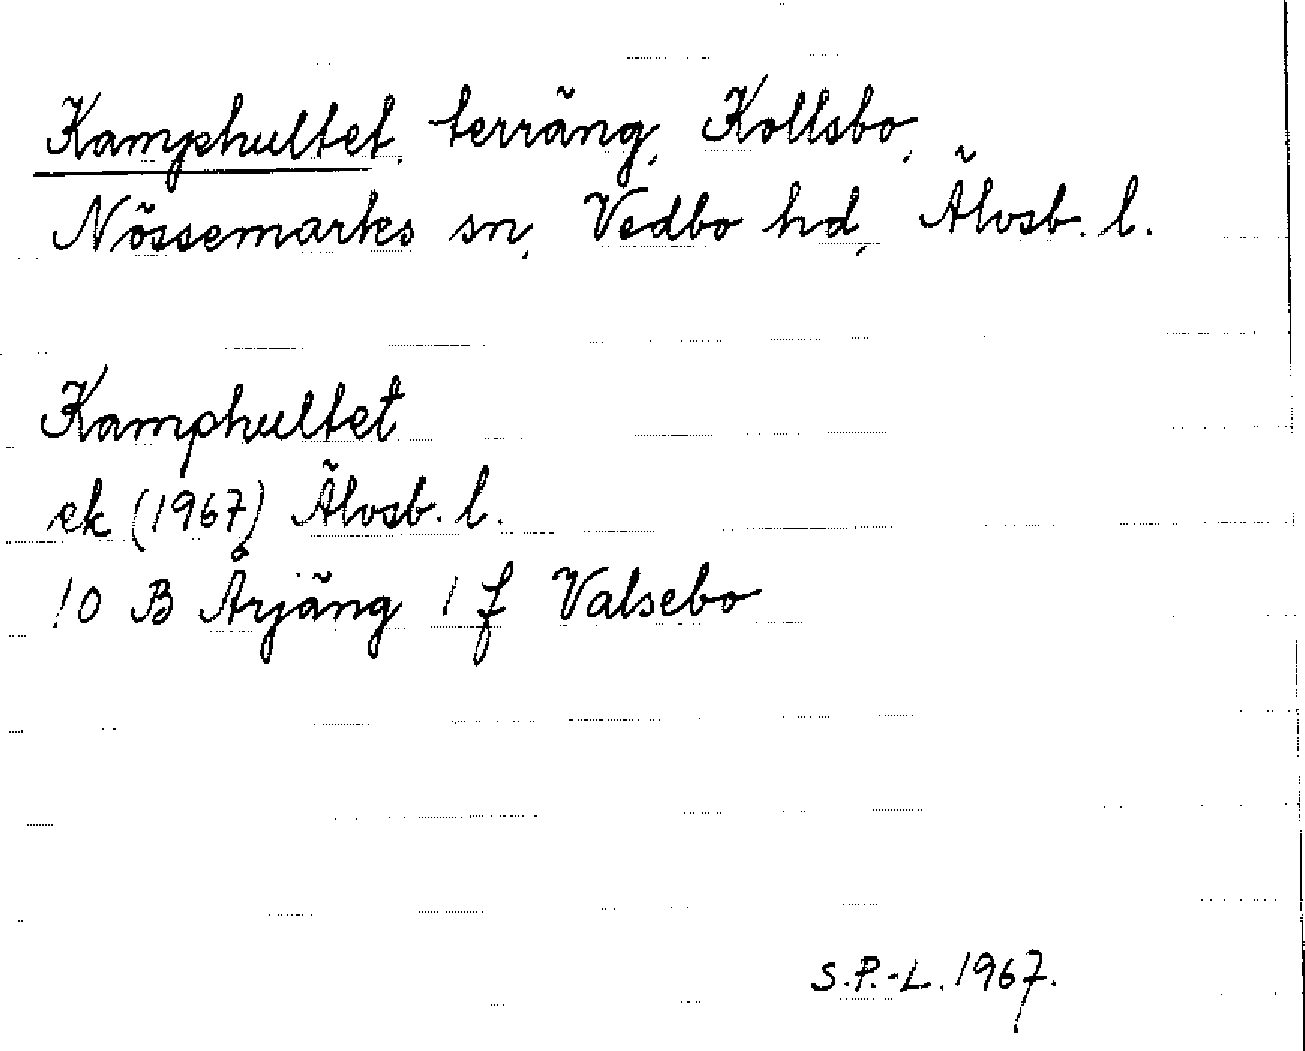 Kamphultet, terräng, Kollsbo,
Nössemarks sn, Vedbo hd, Älvsb. l.
Kamphultet
ek (1967) Älvsb. l.
10 B Årjäng 1 f Valsebo
S.P.-L. 1967.